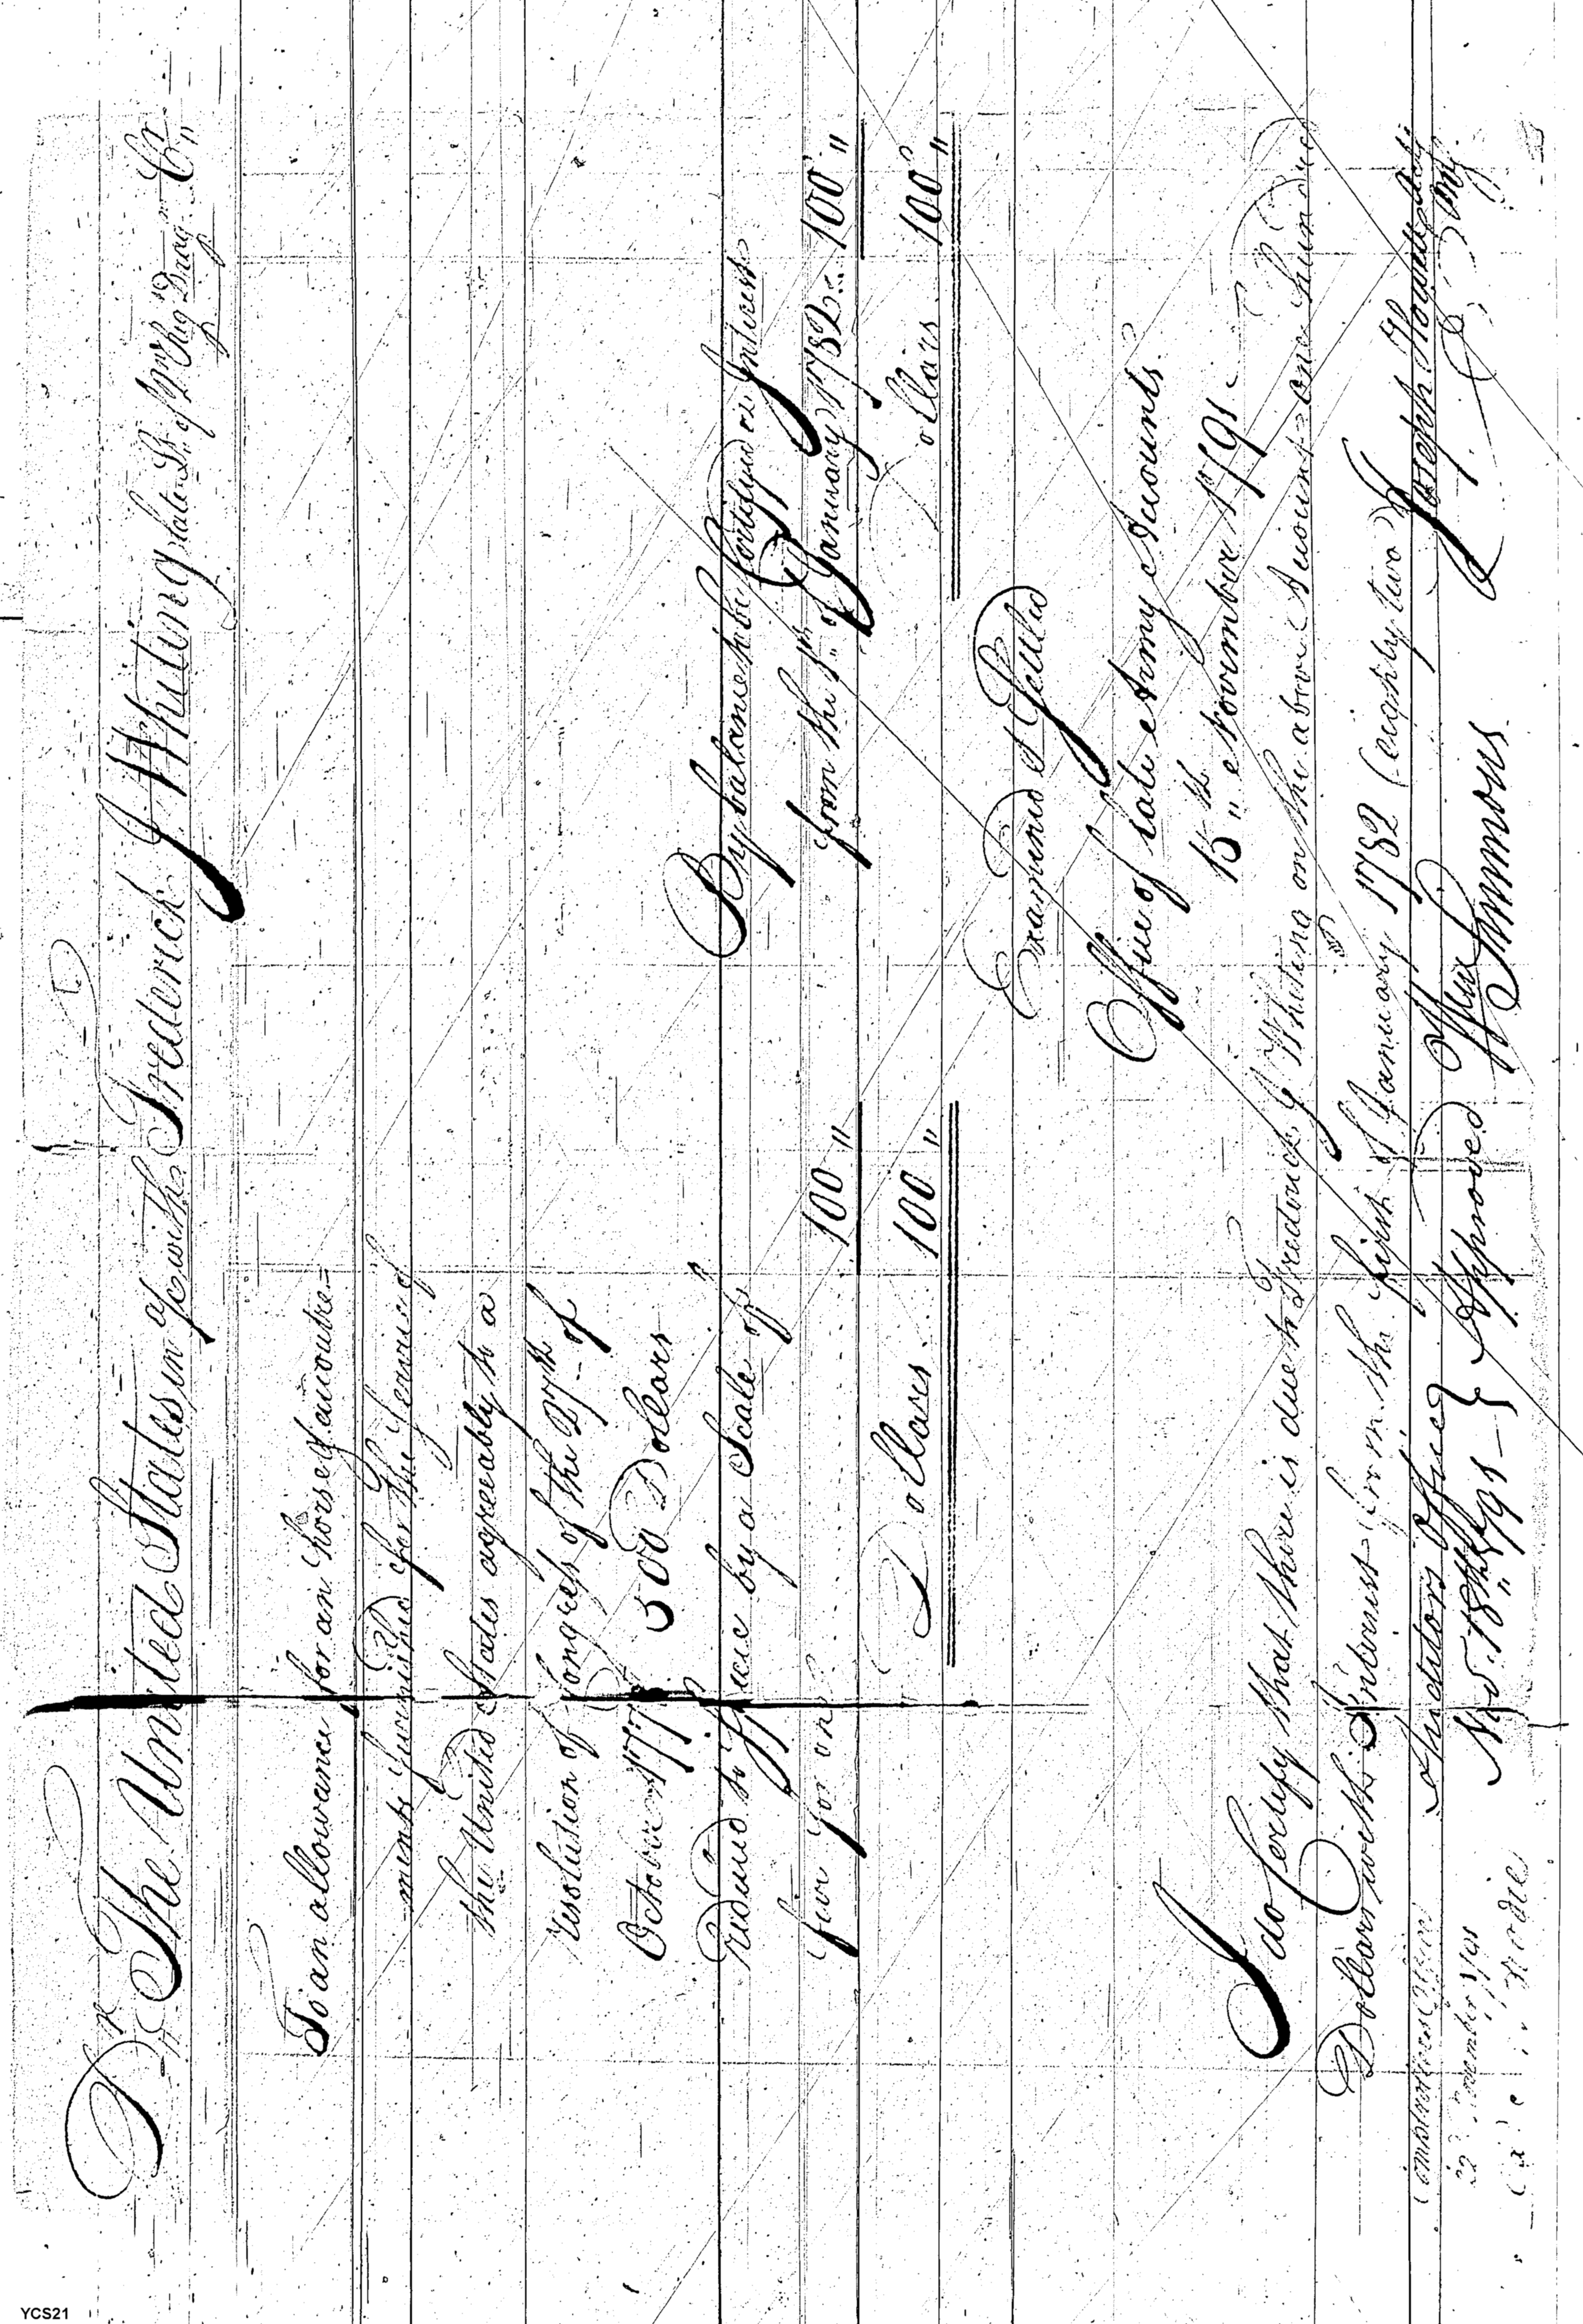 Dr The United States in a/c with Frederick J Whiting late Lt. of 2nd Regt Drag. Cr
To an allowance for an horse & accoutre-
ments furnished for the Service of
the United States agreeably to a
resolution of Congress of the 27th of
October 177 500 Dollars
reduced to specie by a Scale of
five for one 100 "
Dollars 100 "
By balance to be Certifyed on Interest
from the 1st of January 1782 100 "
Dollars 100 "
Examined & Settled
Office of late Army Accounts
15th November 1791
I do Certify that there is due to Frederick J Whiting on the above Account one hundred
Dollars with Interest from the first of January 1782 (eighty two)
Joseph Howell
Auditors Office
Nov. 18th 1791 } Approved Wm Simmons
Comptrollers Office
22d November 1791
YCS21